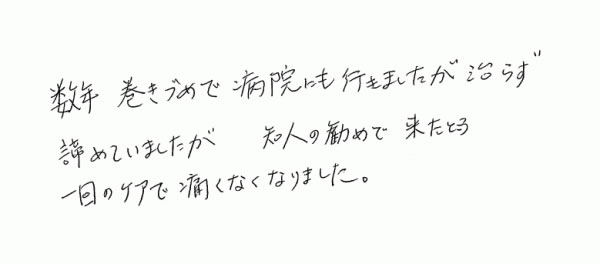 数年 巻きづめで 病院にも 行きましたが 治らず
諦めていましたが 知人の勧めで 来たところ
一回のケアで 痛くなくなりました。